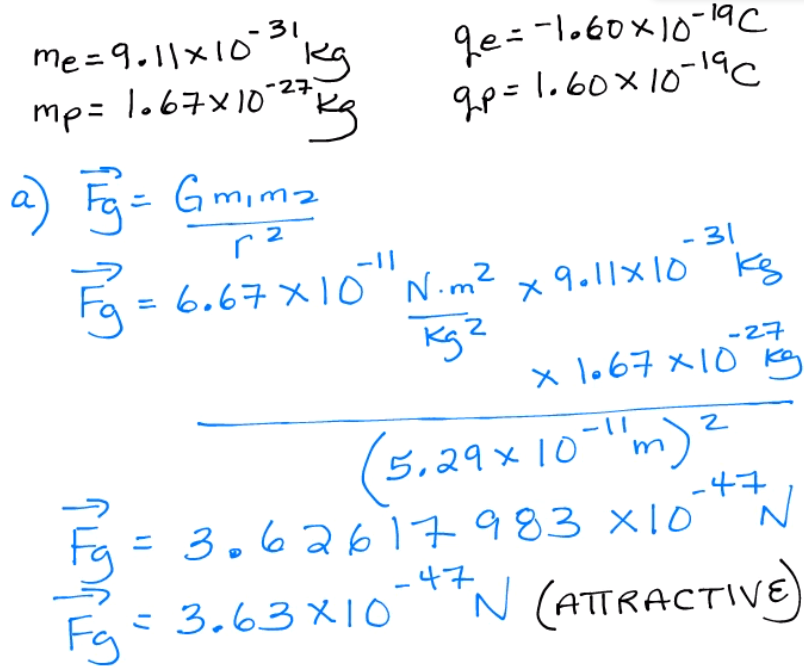 me = 9.11 × 10⁻³¹ kg
qe = -1.60 × 10⁻¹⁹ C
mp = 1.67 × 10⁻²⁷ kg
qp = 1.60 × 10⁻¹⁹ C
a) F⃗g = G m₁ m₂
r²
F⃗g = 6.67 × 10⁻¹¹ N·m² × 9.11 × 10⁻³¹ kg
kg²
× 1.67 × 10⁻²⁷ kg
(5.29 × 10⁻¹¹ m)²
F⃗g = 3.62617983 × 10⁻⁴⁷ N
F⃗g = 3.63 × 10⁻⁴⁷ N (ATTRACTIVE)